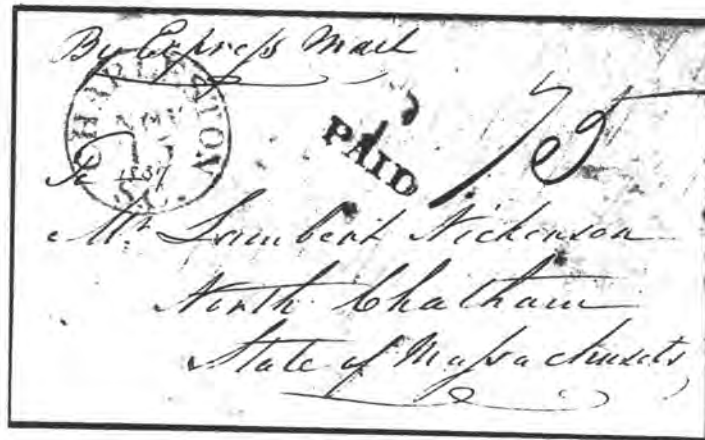 By Expreſs Mail
CHARLESTON
1837
PAID
75
To
Mr. Lumbert Nickerson
North Chatham
State of Maſsachusets